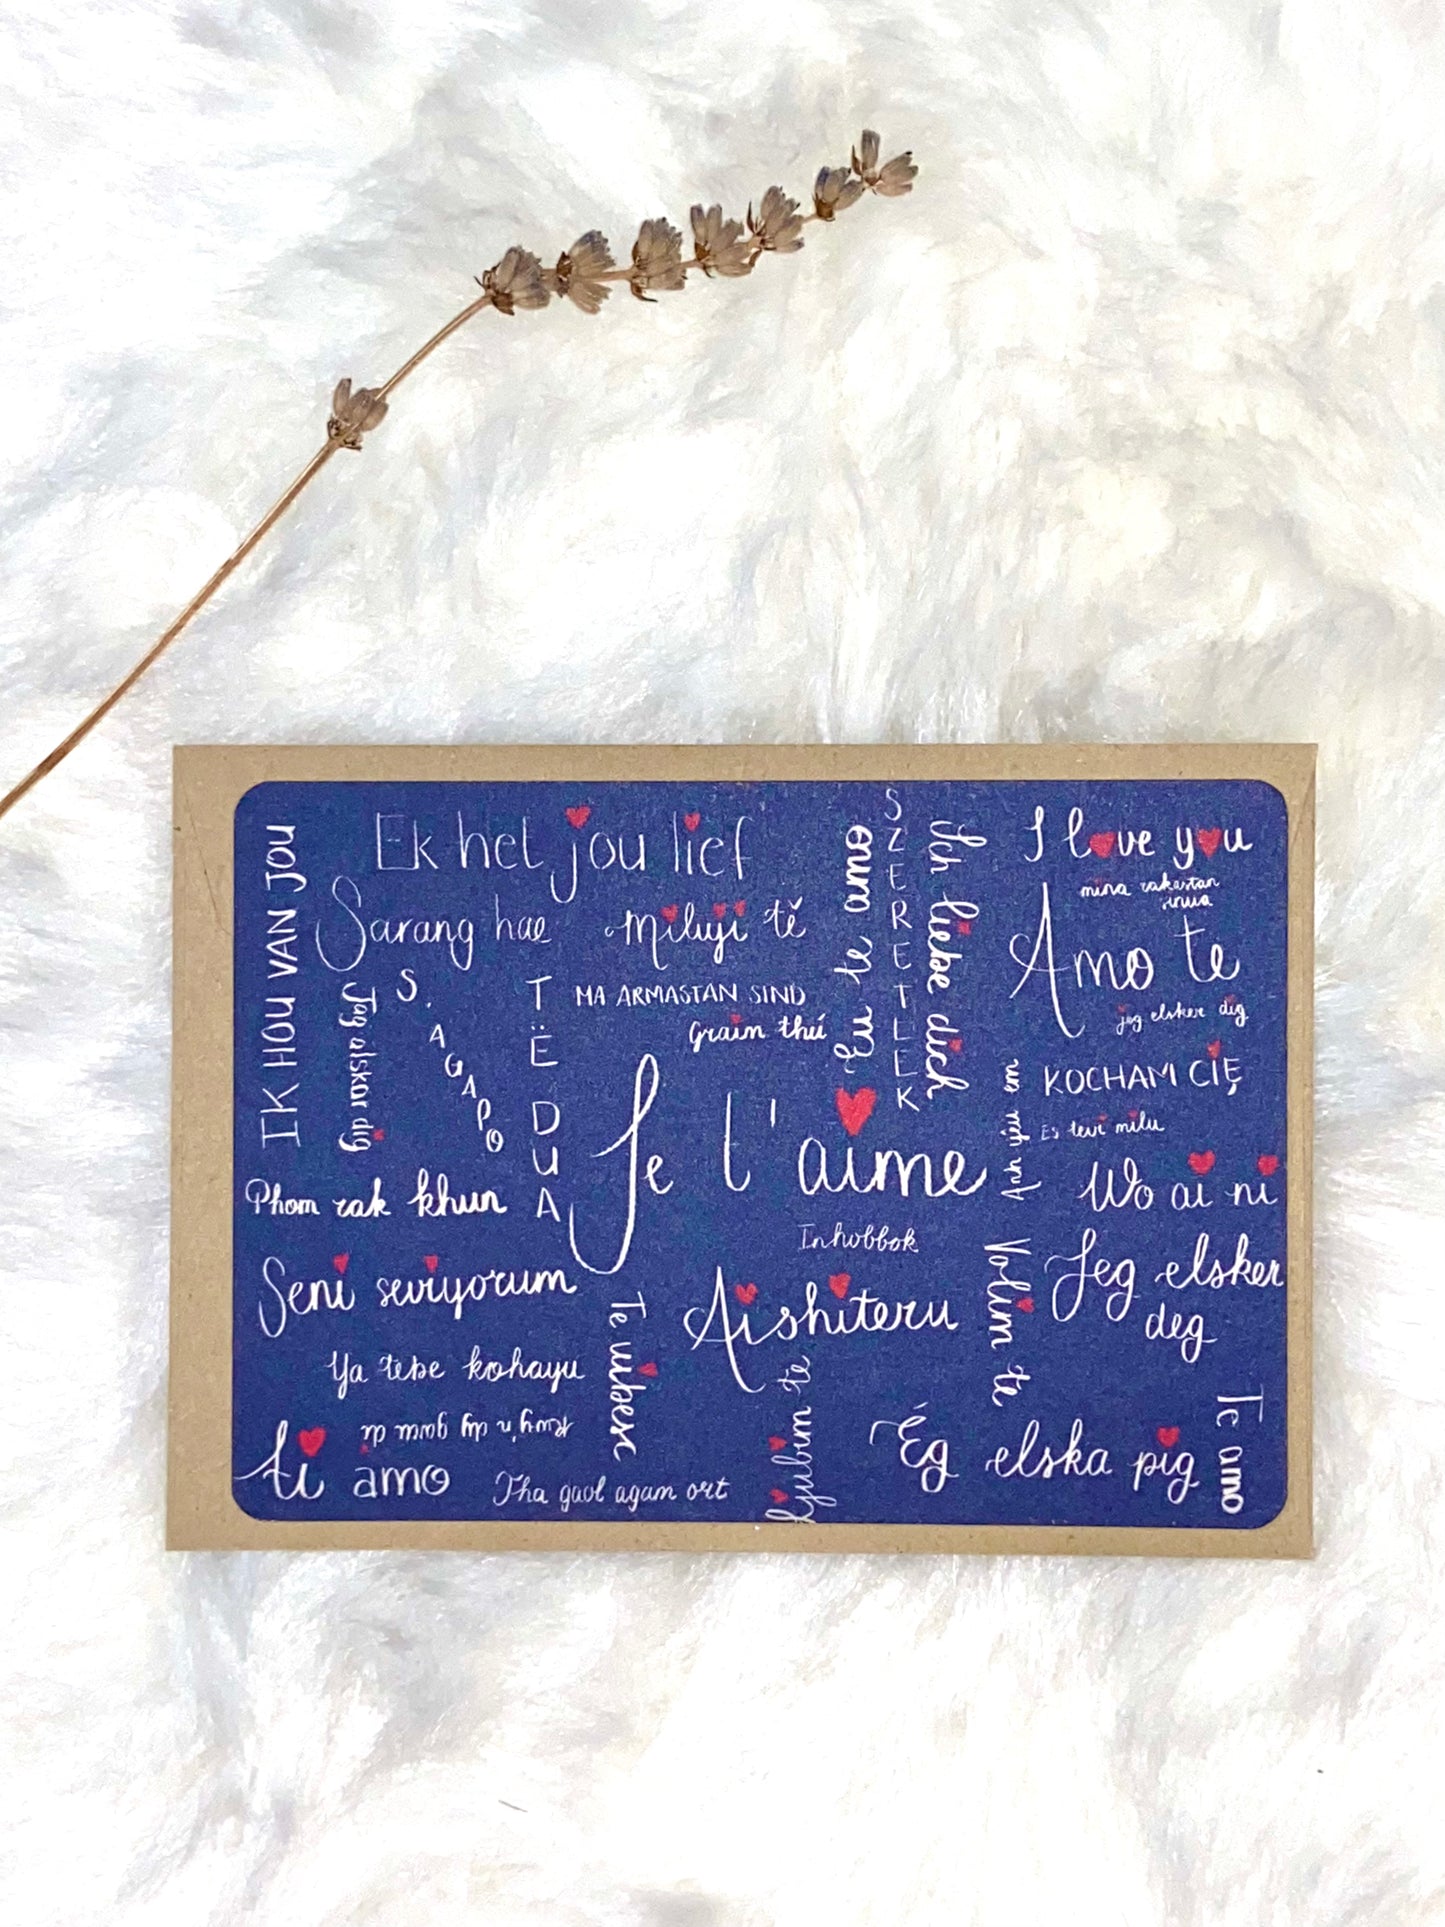 IK HOU VAN JOU
Ek het jou lief
Sarang hae
Miluji tě
SZERETLEK
Eu te amo
Ich liebe dich
I love you
mina rakastan
sinua
Amo te
jeg elsker dig
Jag älskar dig
S'AGAPO
TË DUA
MA ARMASTAN SIND
Graim thú
Je t'aime
Anh yêu em
KOCHAM CIĘ
Es tevi milu
Wo ai ni
Phom rak khun
Inhobbok
Seni seviyorum
Te iubesc
Aishiteru
Volim te
Jeg elsker
deg
Ya tebe kohayu
ti amo
Tha gaol agam ort
Ljubim te
Ég elska þig
Te amo